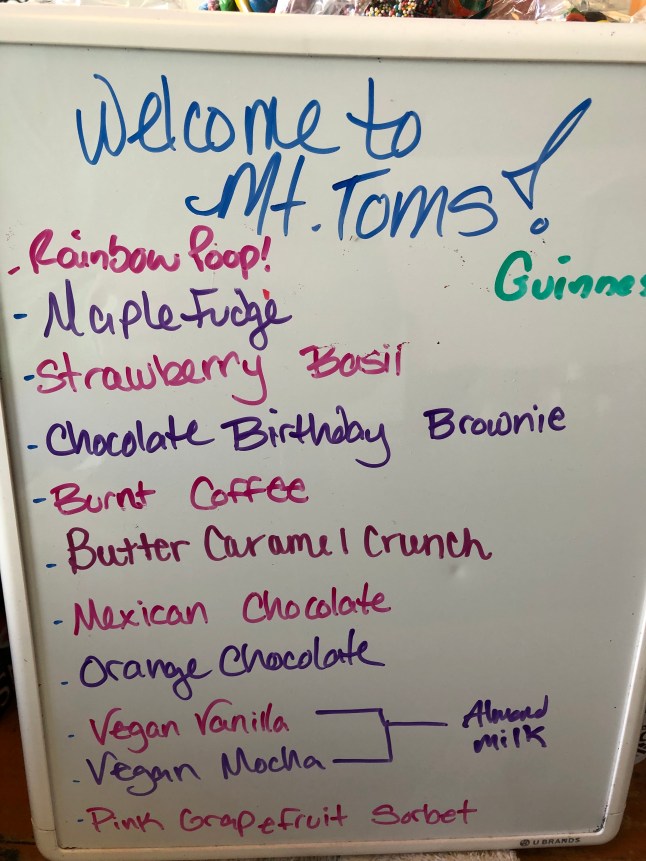 Welcome to
Mt. Toms!
- Rainbow Poop!
Guinnes
- Maple Fudge
- Strawberry Basil
- Chocolate Birthday Brownie
- Burnt Coffee
- Butter Caramel Crunch
- Mexican Chocolate
- Orange Chocolate
- Vegan Vanilla
- Vegan Mocha
Almond
milk
- Pink Grapefruit Sorbet
U BRANDS